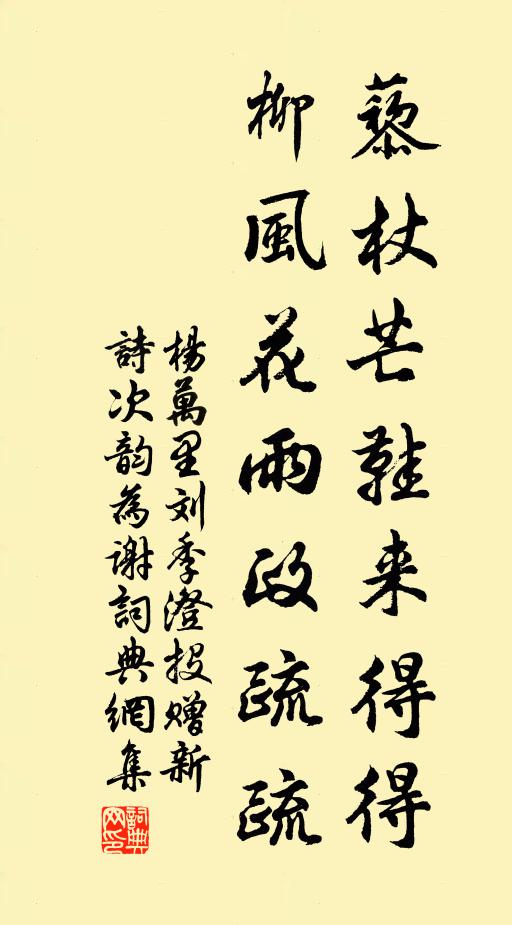 藜杖芒鞋来得得
柳風花雨政疏疏
楊萬里刘季澄投赠新
詩次韵為谢詞典網集
詞典网印